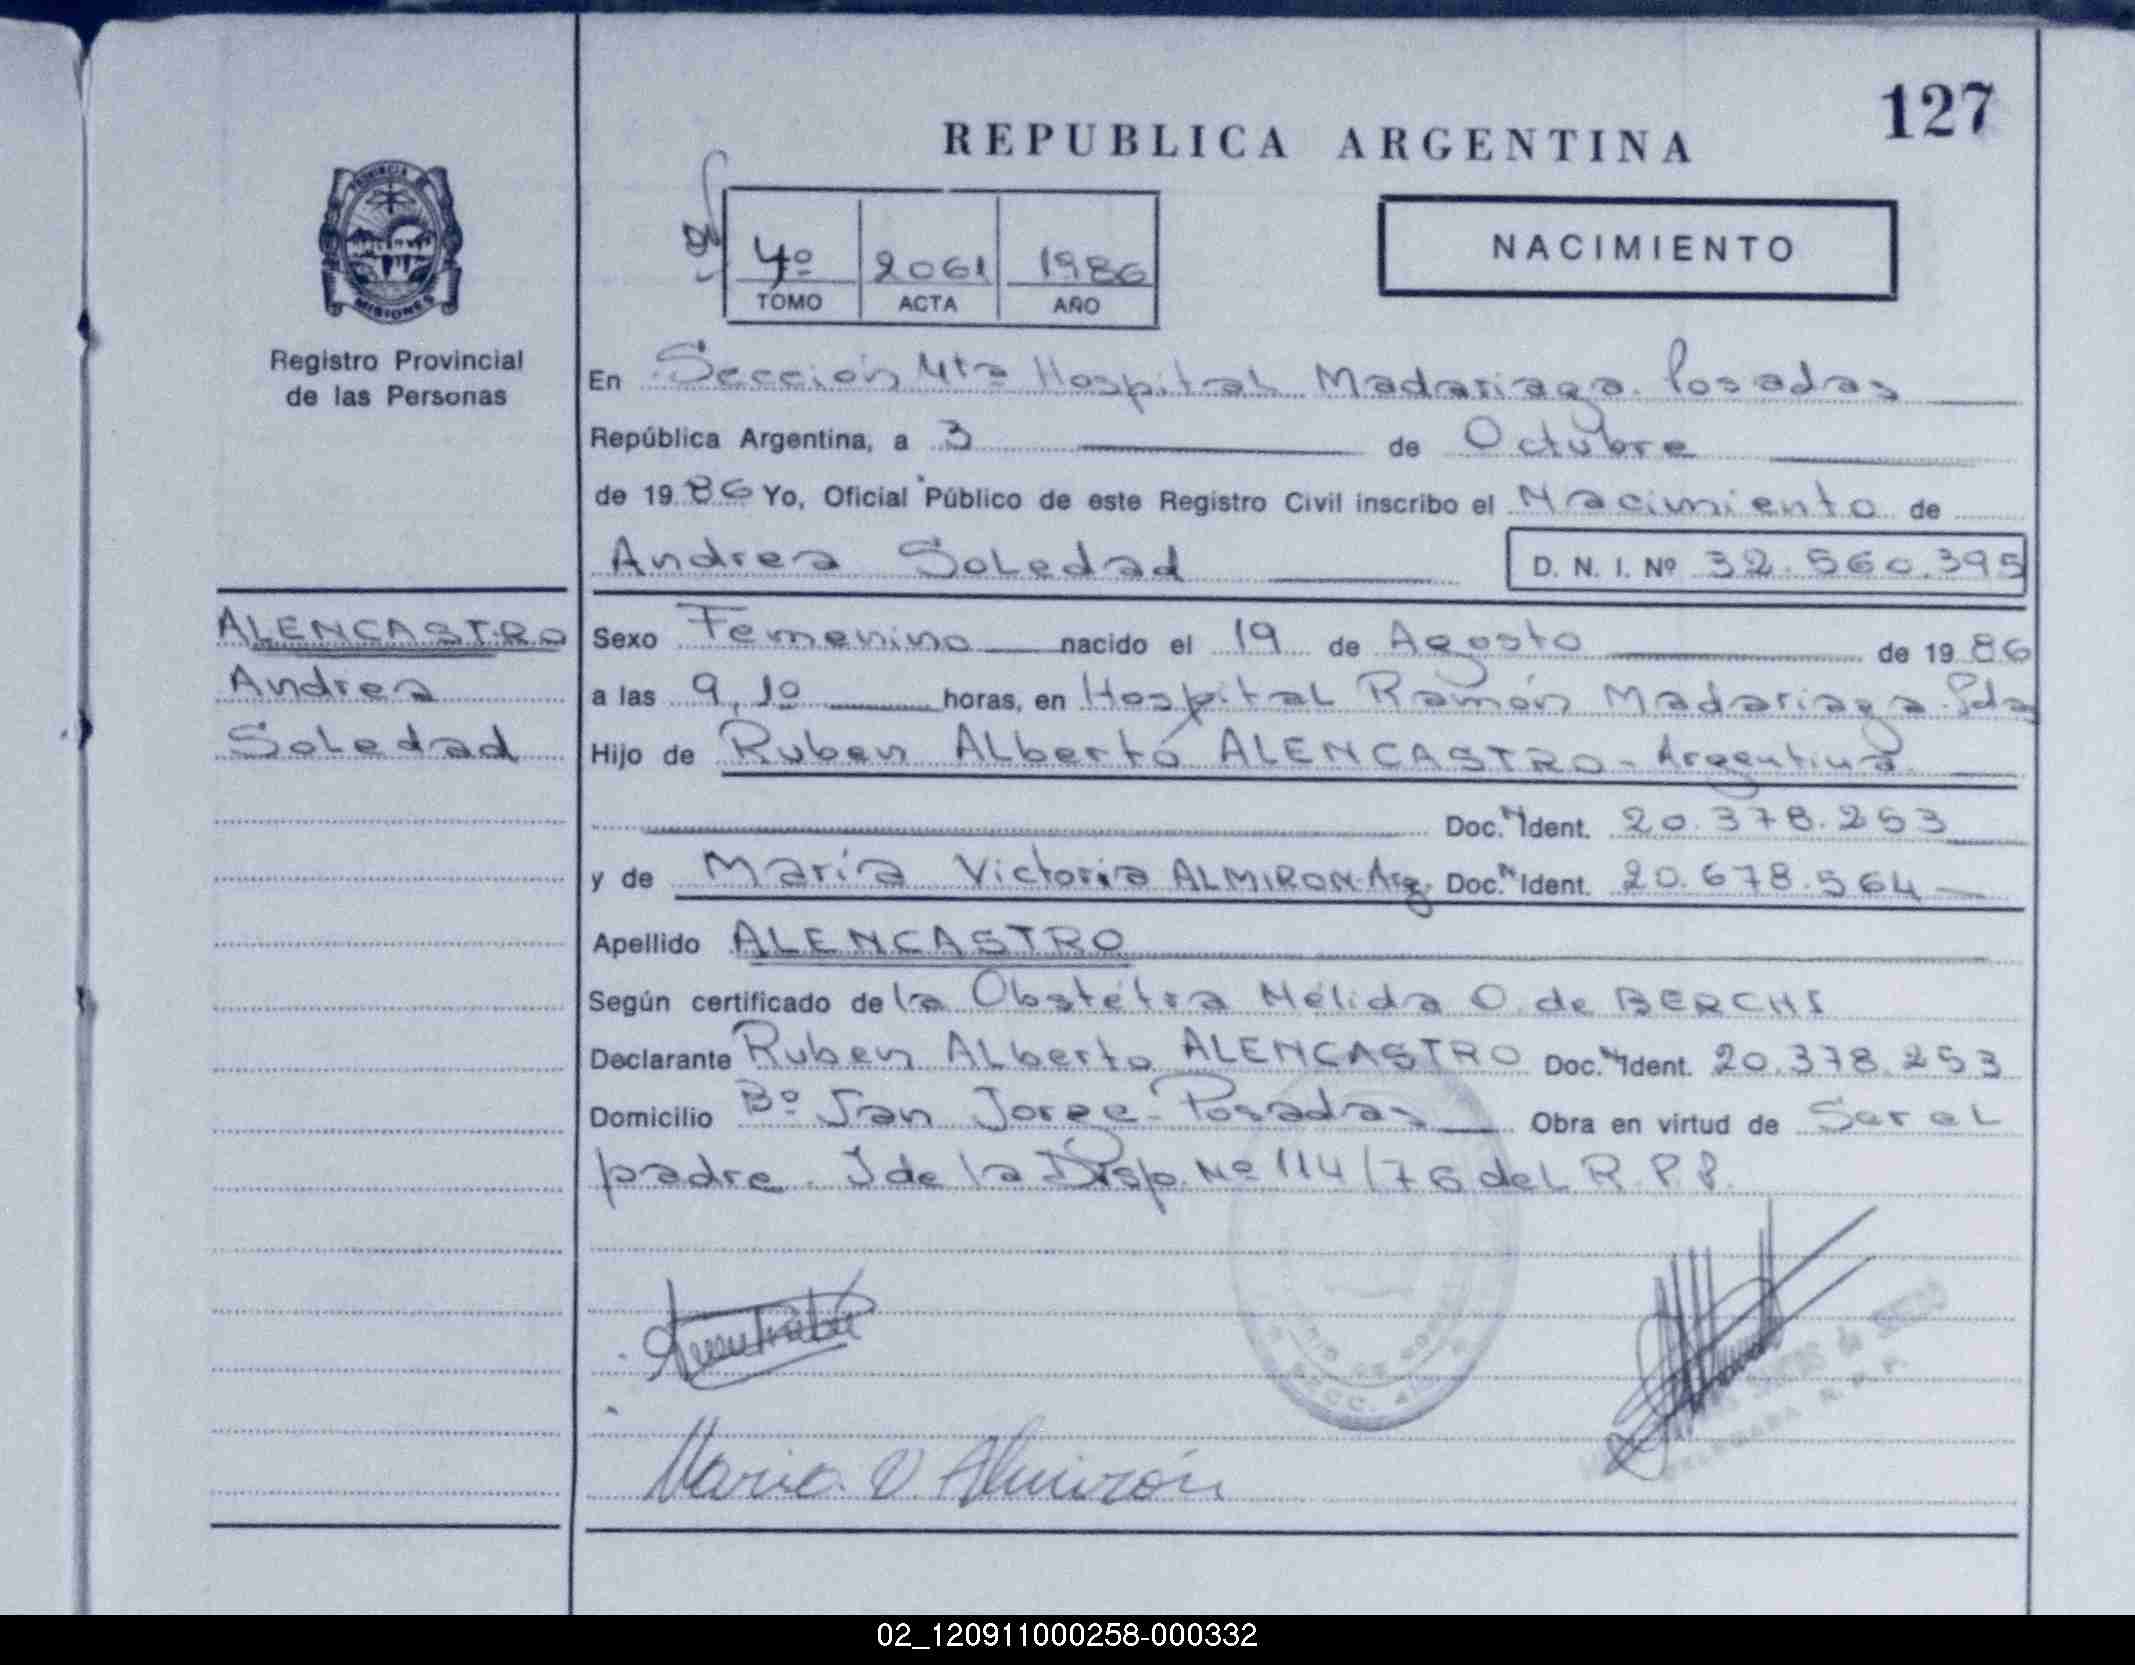 127
REPUBLICA ARGENTINA
PROVINCIA DE
MISIONES
Registro Provincial
de las Personas
4º 2061 1986
TOMO ACTA AÑO
NACIMIENTO
En Sección 4ta Hospital Madariaga. Posadas
República Argentina, a 3 de Octubre
de 1986 Yo, Oficial Público de este Registro Civil inscribo el Nacimiento de
Andrea Soledad D. N. I. Nº 32.560.395
ALENCASTRO
Andrea
Soledad
Sexo Femenino nacido el 19 de Agosto de 1986
a las 9,10 horas, en Hospital Ramón Madariaga. Pdas
Hijo de Ruben Alberto ALENCASTRO - Argentina
Doc. N Ident. 20.378.253
y de María Victoria ALMIRON. Arg. Doc. N Ident. 20.678.564
Apellido ALENCASTRO
Según certificado de la Obstétra Nélida O. de BERCHI
Declarante Ruben Alberto ALENCASTRO Doc. N Ident. 20.378.253
Domicilio Bº San Jorge - Posadas Obra en virtud de Ser el
padre. I de la Disp. Nº 114/76 del R.P.P.
SECC. 4
DELEGADA R. P. P.
Maria V Almirón
02_120911000258-000332